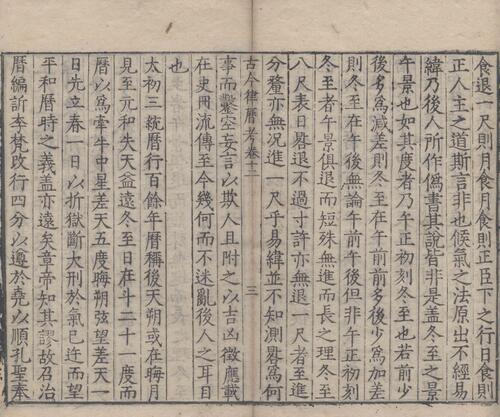 食退一尺則月食月食則正臣下之行日食則
正人主之道斯言非也候氣之法原出不經易
緯乃後人所作僞書其說皆非是蓋冬至之景
午景也如其度者乃午正初刻冬至也若前少
後多爲減差則冬至在午前前多後少爲加差
則冬至在午後無論午前午後但非午正初刻
冬至者午景俱退而短殊無進而長之理冬至
八尺表日晷退不過寸許亦無退一尺者至進
分釐亦無況進一尺乎易緯並不知測晷爲何
古今律曆考卷二
三
事而鑿空妄言以欺人且附之以吉凶徵應載
在史冊流傳至今幾何而不迷亂後人之耳目
也
太初三統曆行百餘年曆稱後天朔或在晦月
見至元和失天益遠冬至日在斗二十一度而
曆以爲牽牛中星差天五度晦朔弦望差天一
日先立春一日以折獄斷大刑於氣已迕而望
平和曆時之義蓋亦遠矣章帝知其謬故召治
曆編訢李梵改行四分以遵於堯以順孔聖奉